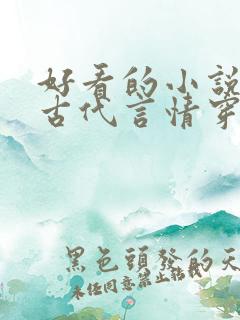 好看的小說
古代言情穿
黑色頭發的天
未經同意禁止轉載